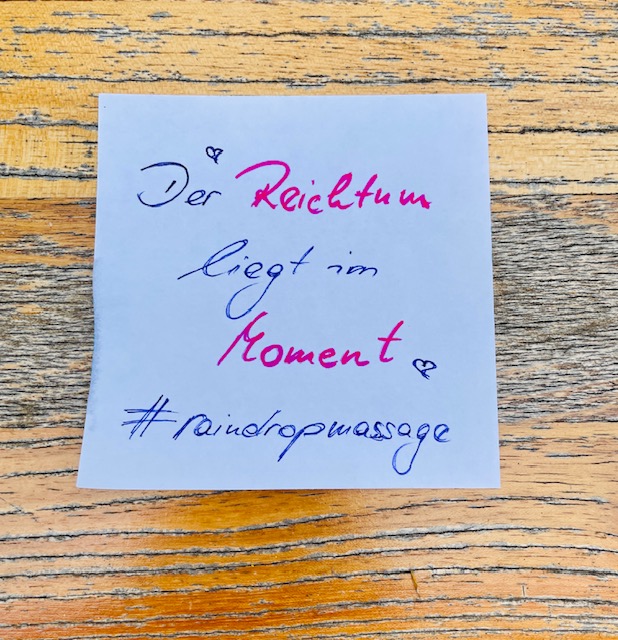 Der Reichtum
liegt im
Moment
#raindropmassage